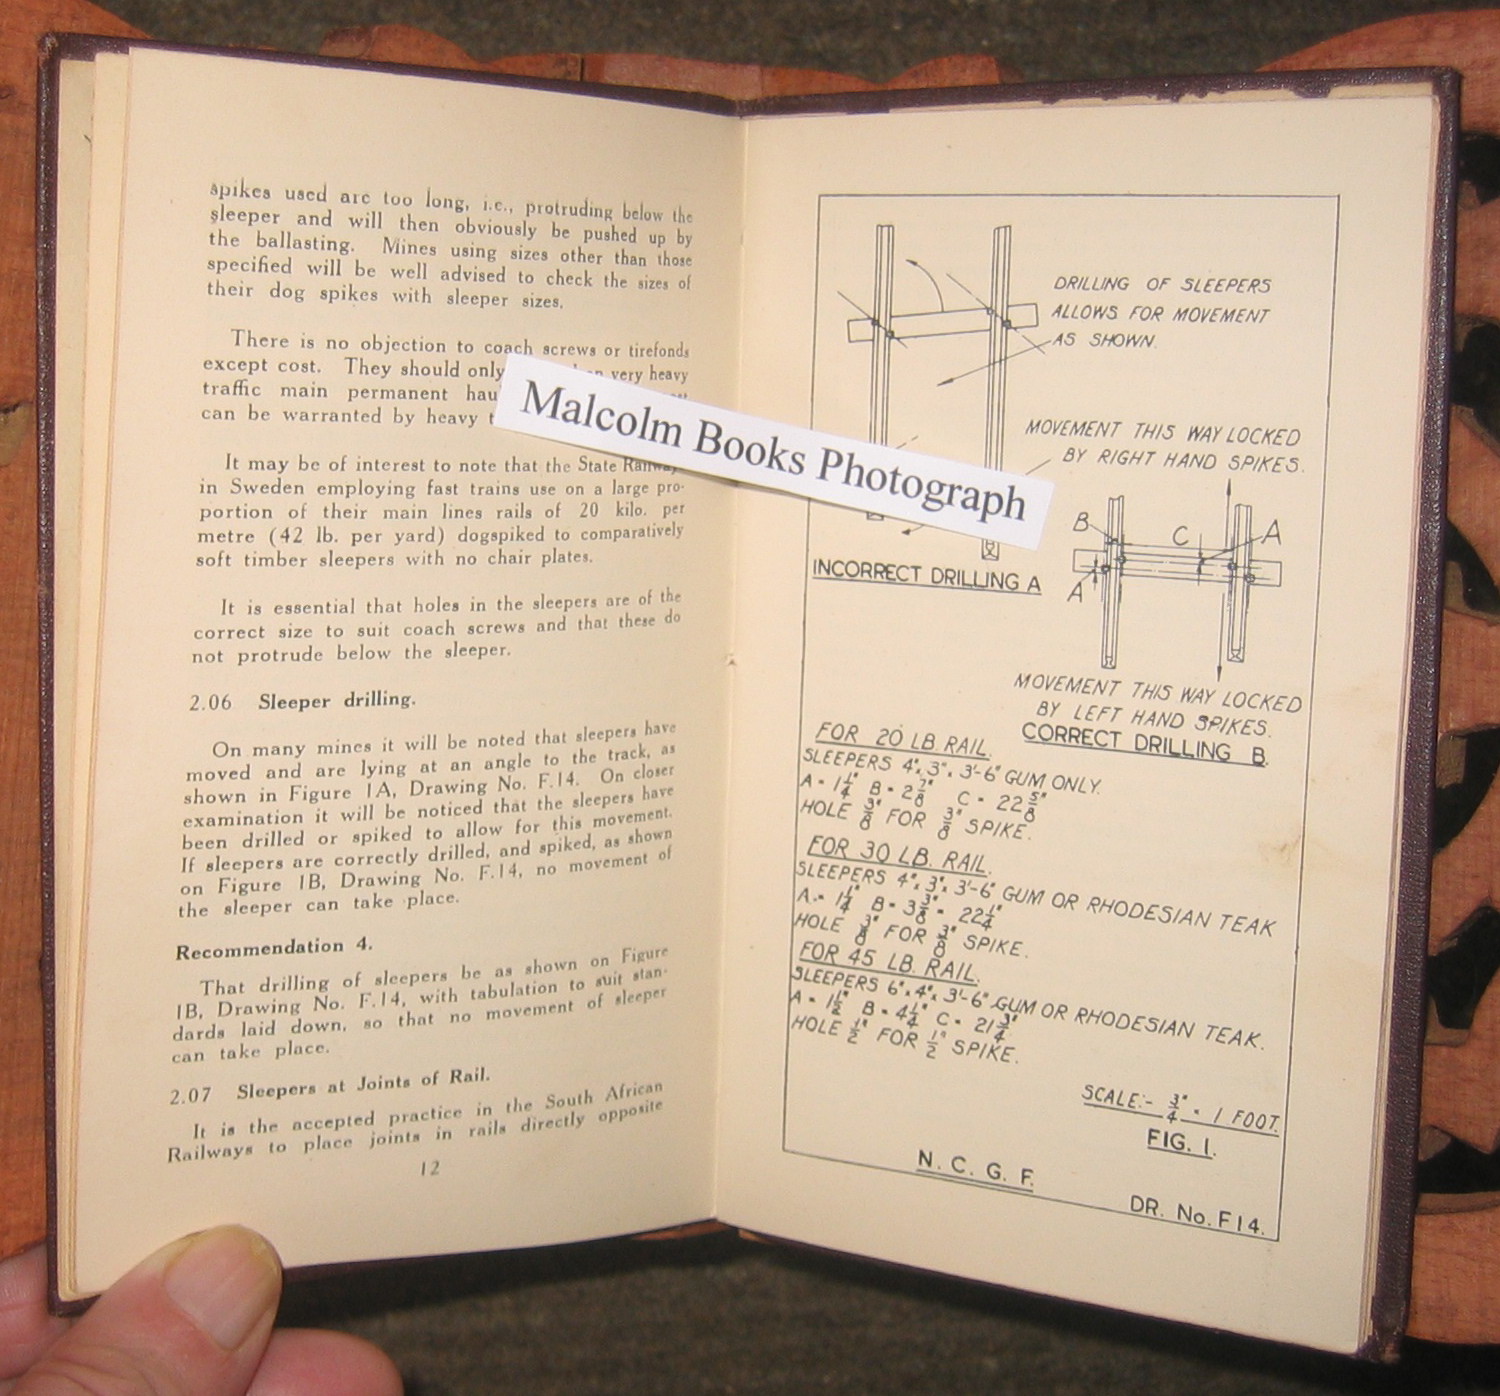 spikes used are too long, i.e., protruding below the
sleeper and will then obviously be pushed up by
the ballasting. Mines using sizes other than those
specified will be well advised to check the sizes of
their dog spikes with sleeper sizes.
There is no objection to coach screws or tirefonds
except cost. They should only very heavy
traffic main permanent
can be warranted by heavy
It may be of interest to note that the State
in Sweden employing fast trains use on a large pro-
portion of their main lines rails of 20 kilo. per
metre (42 lb. per yard) dogspiked to comparatively
soft timber sleepers with no chair plates.
It is essential that holes in the sleepers are of the
correct size to suit coach screws and that these do
not protrude below the sleeper.
2.06 Sleeper drilling.
On many mines it will be noted that sleepers have
moved and are lying at an angle to the track, as
shown in Figure 1A, Drawing No. F.14. On closer
examination it will be noticed that the sleepers have
been drilled or spiked to allow for this movement.
If sleepers are correctly drilled, and spiked, as shown
on Figure 1B, Drawing No. F.14, no movement of
the sleeper can take place.
Recommendation 4.
That drilling of sleepers be as shown on Figure
1B, Drawing No. F.14, with tabulation to suit stan-
dards laid down, so that no movement of sleeper
can take place.
2.07 Sleepers at Joints of Rail.
It is the accepted practice in the South African
Railways to place joints in rails directly opposite
12
Malcolm Books Photograph
DRILLING OF SLEEPERS
ALLOWS FOR MOVEMENT
AS SHOWN.
INCORRECT DRILLING A
MOVEMENT THIS WAY LOCKED
BY RIGHT HAND SPIKES.
B C A
A
MOVEMENT THIS WAY LOCKED
BY LEFT HAND SPIKES.
CORRECT DRILLING B.
FOR 20 LB. RAIL.
SLEEPERS 4"x 3"x 3'-6" GUM ONLY.
A = 1¼" B = 2⅞" C = 22⅝"
HOLE ⅜" FOR ⅜" SPIKE.
FOR 30 LB. RAIL.
SLEEPERS 4"x 3"x 3'-6" GUM OR RHODESIAN TEAK
A = 1¼" B = 3⅜" = 22¼"
HOLE ⅜" FOR ⅜" SPIKE.
FOR 45 LB. RAIL.
SLEEPERS 6"x 4"x 3'-6" GUM OR RHODESIAN TEAK.
A = 1½" B = 4¼" C = 21¾"
HOLE ½" FOR ½" SPIKE.
SCALE:- ¾" = 1 FOOT.
FIG. 1.
N. C. G. F.
DR. No. F14.